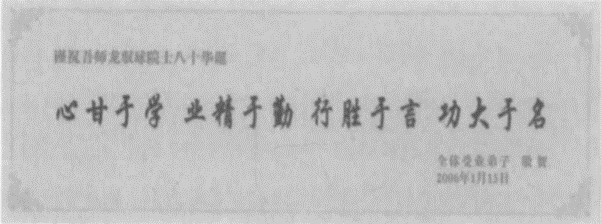 谨祝吾师龙驭球院士八十华诞
心甘于学 业精于勤 行胜于言 功大于名
全体受业弟子 敬贺
2006年1月15日